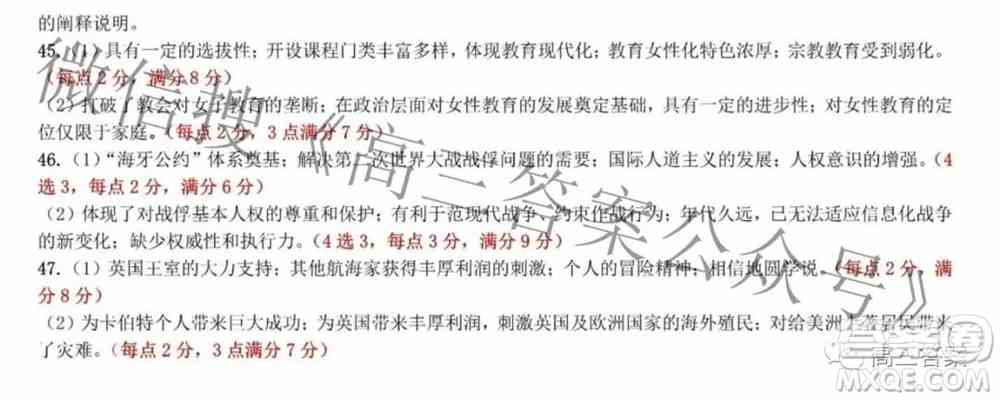 的阐释说明。
45. (1) 具有一定的选拔性；开设课程门类丰富多样，体现教育现代化；教育女性化特色浓厚；宗教教育受到弱化。
(每点 2 分，满分 8 分)
(2) 打破了教会对女子教育的垄断；在政治层面对女性教育的发展奠定基础，具有一定的进步性；对女性教育的定
位仅限于家庭。(每点 2 分，3 点满分 7 分)
46. (1) “海牙公约” 体系奠基；解决第二次世界大战战俘问题的需要；国际人道主义的发展；人权意识的增强。(4
选 3，每点 2 分，满分 6 分)
(2) 体现了对战俘基本人权的尊重和保护；有利于规范现代战争、约束作战行为；年代久远，已无法适应信息化战争
的新变化；缺少权威性和执行力。(4 选 3，每点 3 分，满分 9 分)
47. (1) 英国王室的大力支持；其他航海家获得丰厚利润的刺激；个人的冒险精神；相信地圆学说。(每点 2 分，满
分 8 分)
(2) 为卡伯特个人带来巨大成功；为英国带来丰厚利润，刺激英国及欧洲国家的海外殖民；对给美洲土著居民带来
了灾难。(每点 2 分，3 点满分 7 分)
微信搜《高三答案公众号》
高三答案
答案圈
MXQE.COM